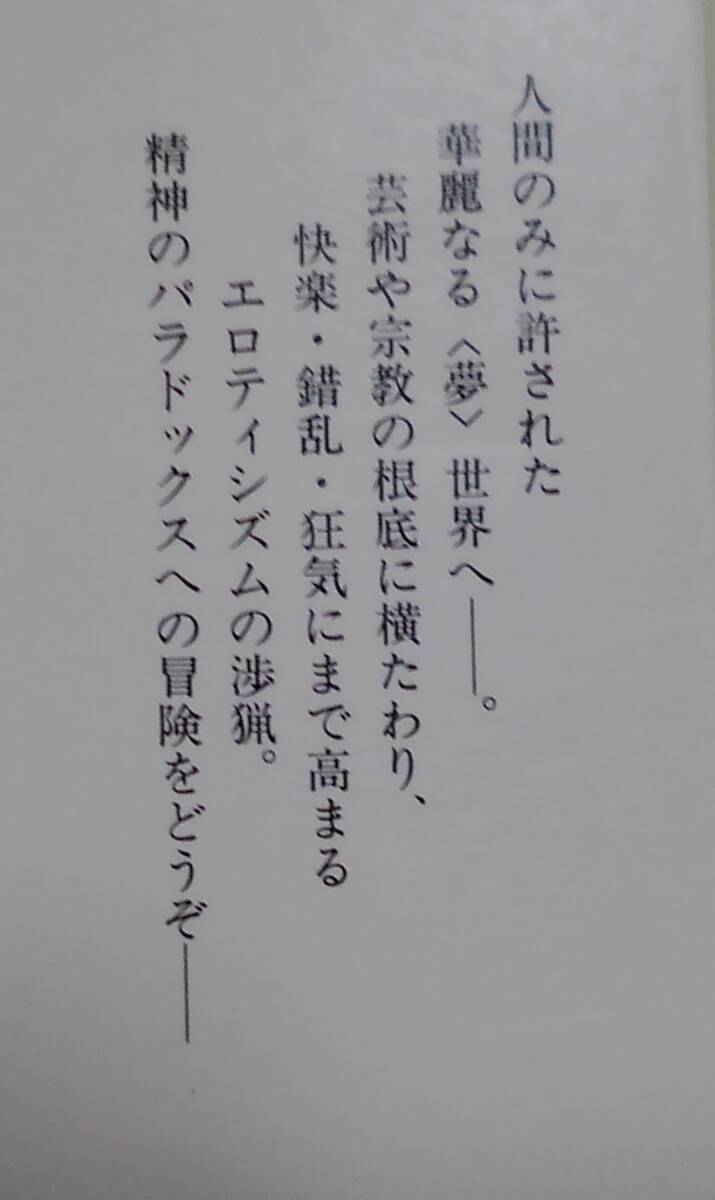 人間のみに許された
華麗なる〈夢〉世界へ――。
芸術や宗教の根底に横たわり、
快楽・錯乱・狂気にまで高まる
エロティシズムの渉猟。
精神のパラドックスへの冒険をどうぞ――